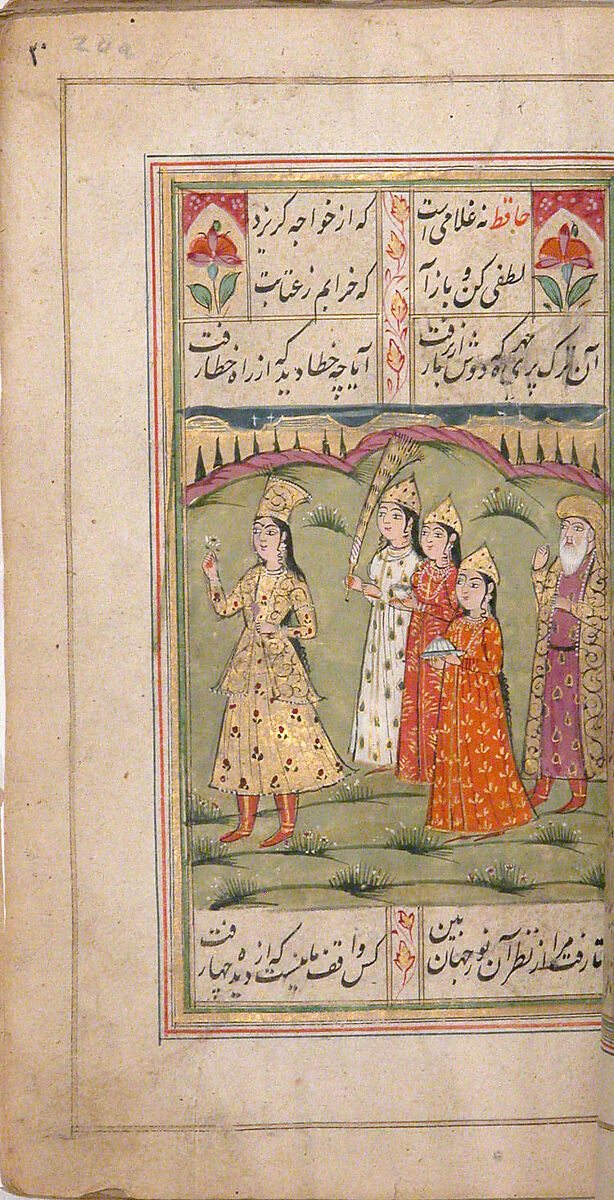 حافظ نه غلامی است که از خواجه کریزد
لطفی کن و باز آ که خرابم ز عتابت
آن ترک پری چهره که دوش از بر ما رفت آیا چه خطا دید که از راه خطا رفت
تا رفت مرا از نظر آن نور جهان بین کس واقف ما نیست که از دیده چها رفت